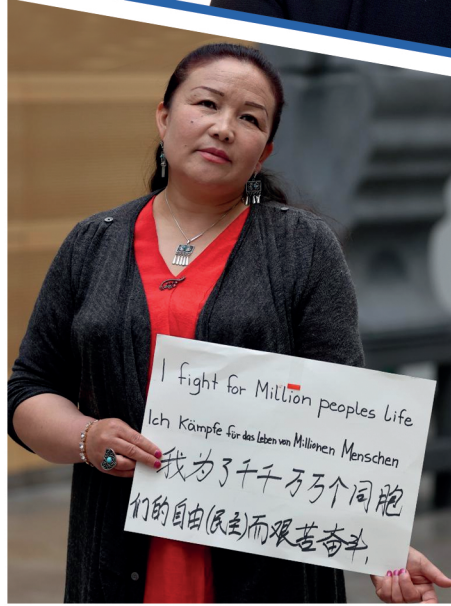 I fight for Million peoples life
Ich Kämpfe für das Leben von Millionen Menschen
我为了千千万万个同胞
们的自由(民主)而艰苦奋斗,